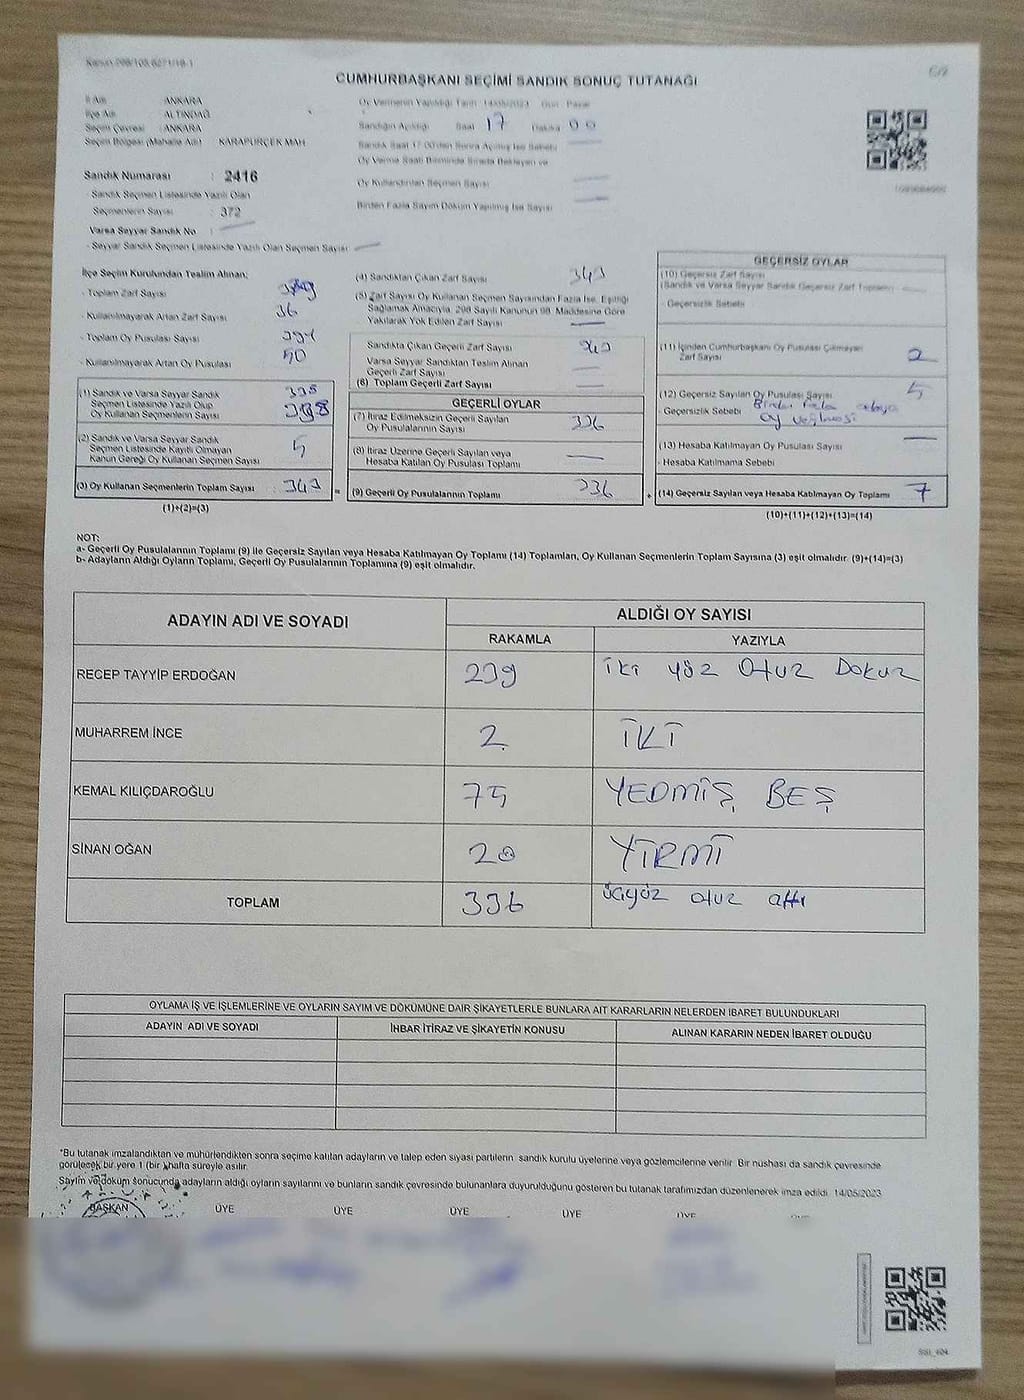 CUMHURBAŞKANI SEÇİMİ SANDIK SONUÇ TUTANAĞI
İl Adı : ANKARA
İlçe Adı : ALTINDAĞ
Seçim Çevresi : ANKARA
Seçim Bölgesi (Mahalle Adı) KARAPÜRÇEK MAH
Sandık Numarası : 2416
- Sandık Seçmen Listesinde Yazılı Olan
Seçmenlerin Sayısı : 372
Varsa Seyyar Sandık No :
- Seyyar Sandık Seçmen Listesinde Yazılı Olan Seçmen Sayısı
Oy Vermenin Yapıldığı Tarih 14/05/2023 Gün Pazar
Sandığın Açıldığı Saat 17 Dakika 00
Sandık Saat 17.00'den Sonra Açılmış İse Sebebi
Oy Verme Saati Bitiminde Sırada Bekleyen ve
Oy Kullandırılan Seçmen Sayısı
Birden Fazla Sayım Döküm Yapılmış İse Sayısı
İlçe Seçim Kurulundan Teslim Alınan;
- Toplam Zarf Sayısı
- Kullanılmayarak Artan Zarf Sayısı 36
- Toplam Oy Pusulası Sayısı
- Kullanılmayarak Artan Oy Pusulası
(1) Sandık ve Varsa Seyyar Sandık
Seçmen Listesinde Yazılı Olup
Oy Kullanan Seçmenlerin Sayısı 338
(2) Sandık ve Varsa Seyyar Sandık
Seçmen Listesinde Kayıtlı Olmayan
Kanun Gereği Oy Kullanan Seçmen Sayısı 5
(3) Oy Kullanan Seçmenlerin Toplam Sayısı 343
(1)+(2)=(3)
(4) Sandıktan Çıkan Zarf Sayısı 343
(5) Zarf Sayısı Oy Kullanan Seçmen Sayısından Fazla İse, Eşitliği
Sağlamak Amacıyla, 298 Sayılı Kanunun 98. Maddesine Göre
Yakılarak Yok Edilen Zarf Sayısı
Sandıkta Çıkan Geçerli Zarf Sayısı 343
Varsa Seyyar Sandıktan Teslim Alınan
Geçerli Zarf Sayısı
(6) Toplam Geçerli Zarf Sayısı
GEÇERLİ OYLAR
(7) İtiraz Edilmeksizin Geçerli Sayılan
Oy Pusulalarının Sayısı 336
(8) İtiraz Üzerine Geçerli Sayılan veya
Hesaba Katılan Oy Pusulası Toplamı
= (9) Geçerli Oy Pusulalarının Toplamı 336
GEÇERSİZ OYLAR
(10) Geçersiz Zarf Sayısı
(Sandık ve Varsa Seyyar Sandık Geçersiz Zarf Toplamı)
- Geçersizlik Sebebi
(11) İçinden Cumhurbaşkanı Oy Pusulası Çıkmayan
Zarf Sayısı 2
(12) Geçersiz Sayılan Oy Pusulası Sayısı 5
- Geçersizlik Sebebi Birden fazla adaya
oy verilmesi
(13) Hesaba Katılmayan Oy Pusulası Sayısı
- Hesaba Katılmama Sebebi
+ (14) Geçersiz Sayılan veya Hesaba Katılmayan Oy Toplamı 7
(10)+(11)+(12)+(13)=(14)
NOT:
a- Geçerli Oy Pusulalarının Toplamı (9) ile Geçersiz Sayılan veya Hesaba Katılmayan Oy Toplamı (14) Toplamları, Oy Kullanan Seçmenlerin Toplam Sayısına (3) eşit olmalıdır. (9)+(14)=(3)
b- Adayların Aldığı Oyların Toplamı, Geçerli Oy Pusulalarının Toplamına (9) eşit olmalıdır.
ADAYIN ADI VE SOYADI ALDIĞI OY SAYISI
RAKAMLA YAZIYLA
RECEP TAYYİP ERDOĞAN 239 iki yüz Otuz Dokuz
MUHARREM İNCE 2 İKİ
KEMAL KILIÇDAROĞLU 75 YEDMİŞ BEŞ
SİNAN OĞAN 20 YİRMİ
TOPLAM 336 üçyüz otuz altı
OYLAMA İŞ VE İŞLEMLERİNE VE OYLARIN SAYIM VE DÖKÜMÜNE DAİR ŞİKAYETLERLE BUNLARA AİT KARARLARIN NELERDEN İBARET BULUNDUKLARI
ADAYIN ADI VE SOYADI İHBAR İTİRAZ VE ŞİKAYETİN KONUSU ALINAN KARARIN NEDEN İBARET OLDUĞU
*Bu tutanak imzalandıktan ve mühürlendikten sonra seçime katılan adayların ve talep eden siyasi partilerin sandık kurulu üyelerine veya gözlemcilerine verilir. Bir nüshası da sandık çevresinde
görülecek bir yere 1 (bir) hafta süreyle asılır.
Sayım ve döküm sonucunda adayların aldığı oyların sayılarını ve bunların sandık çevresinde bulunanlara duyurulduğunu gösteren bu tutanak tarafımızdan düzenlenerek imza edildi. 14/05/2023
BAŞKAN ÜYE ÜYE ÜYE ÜYE ÜYE